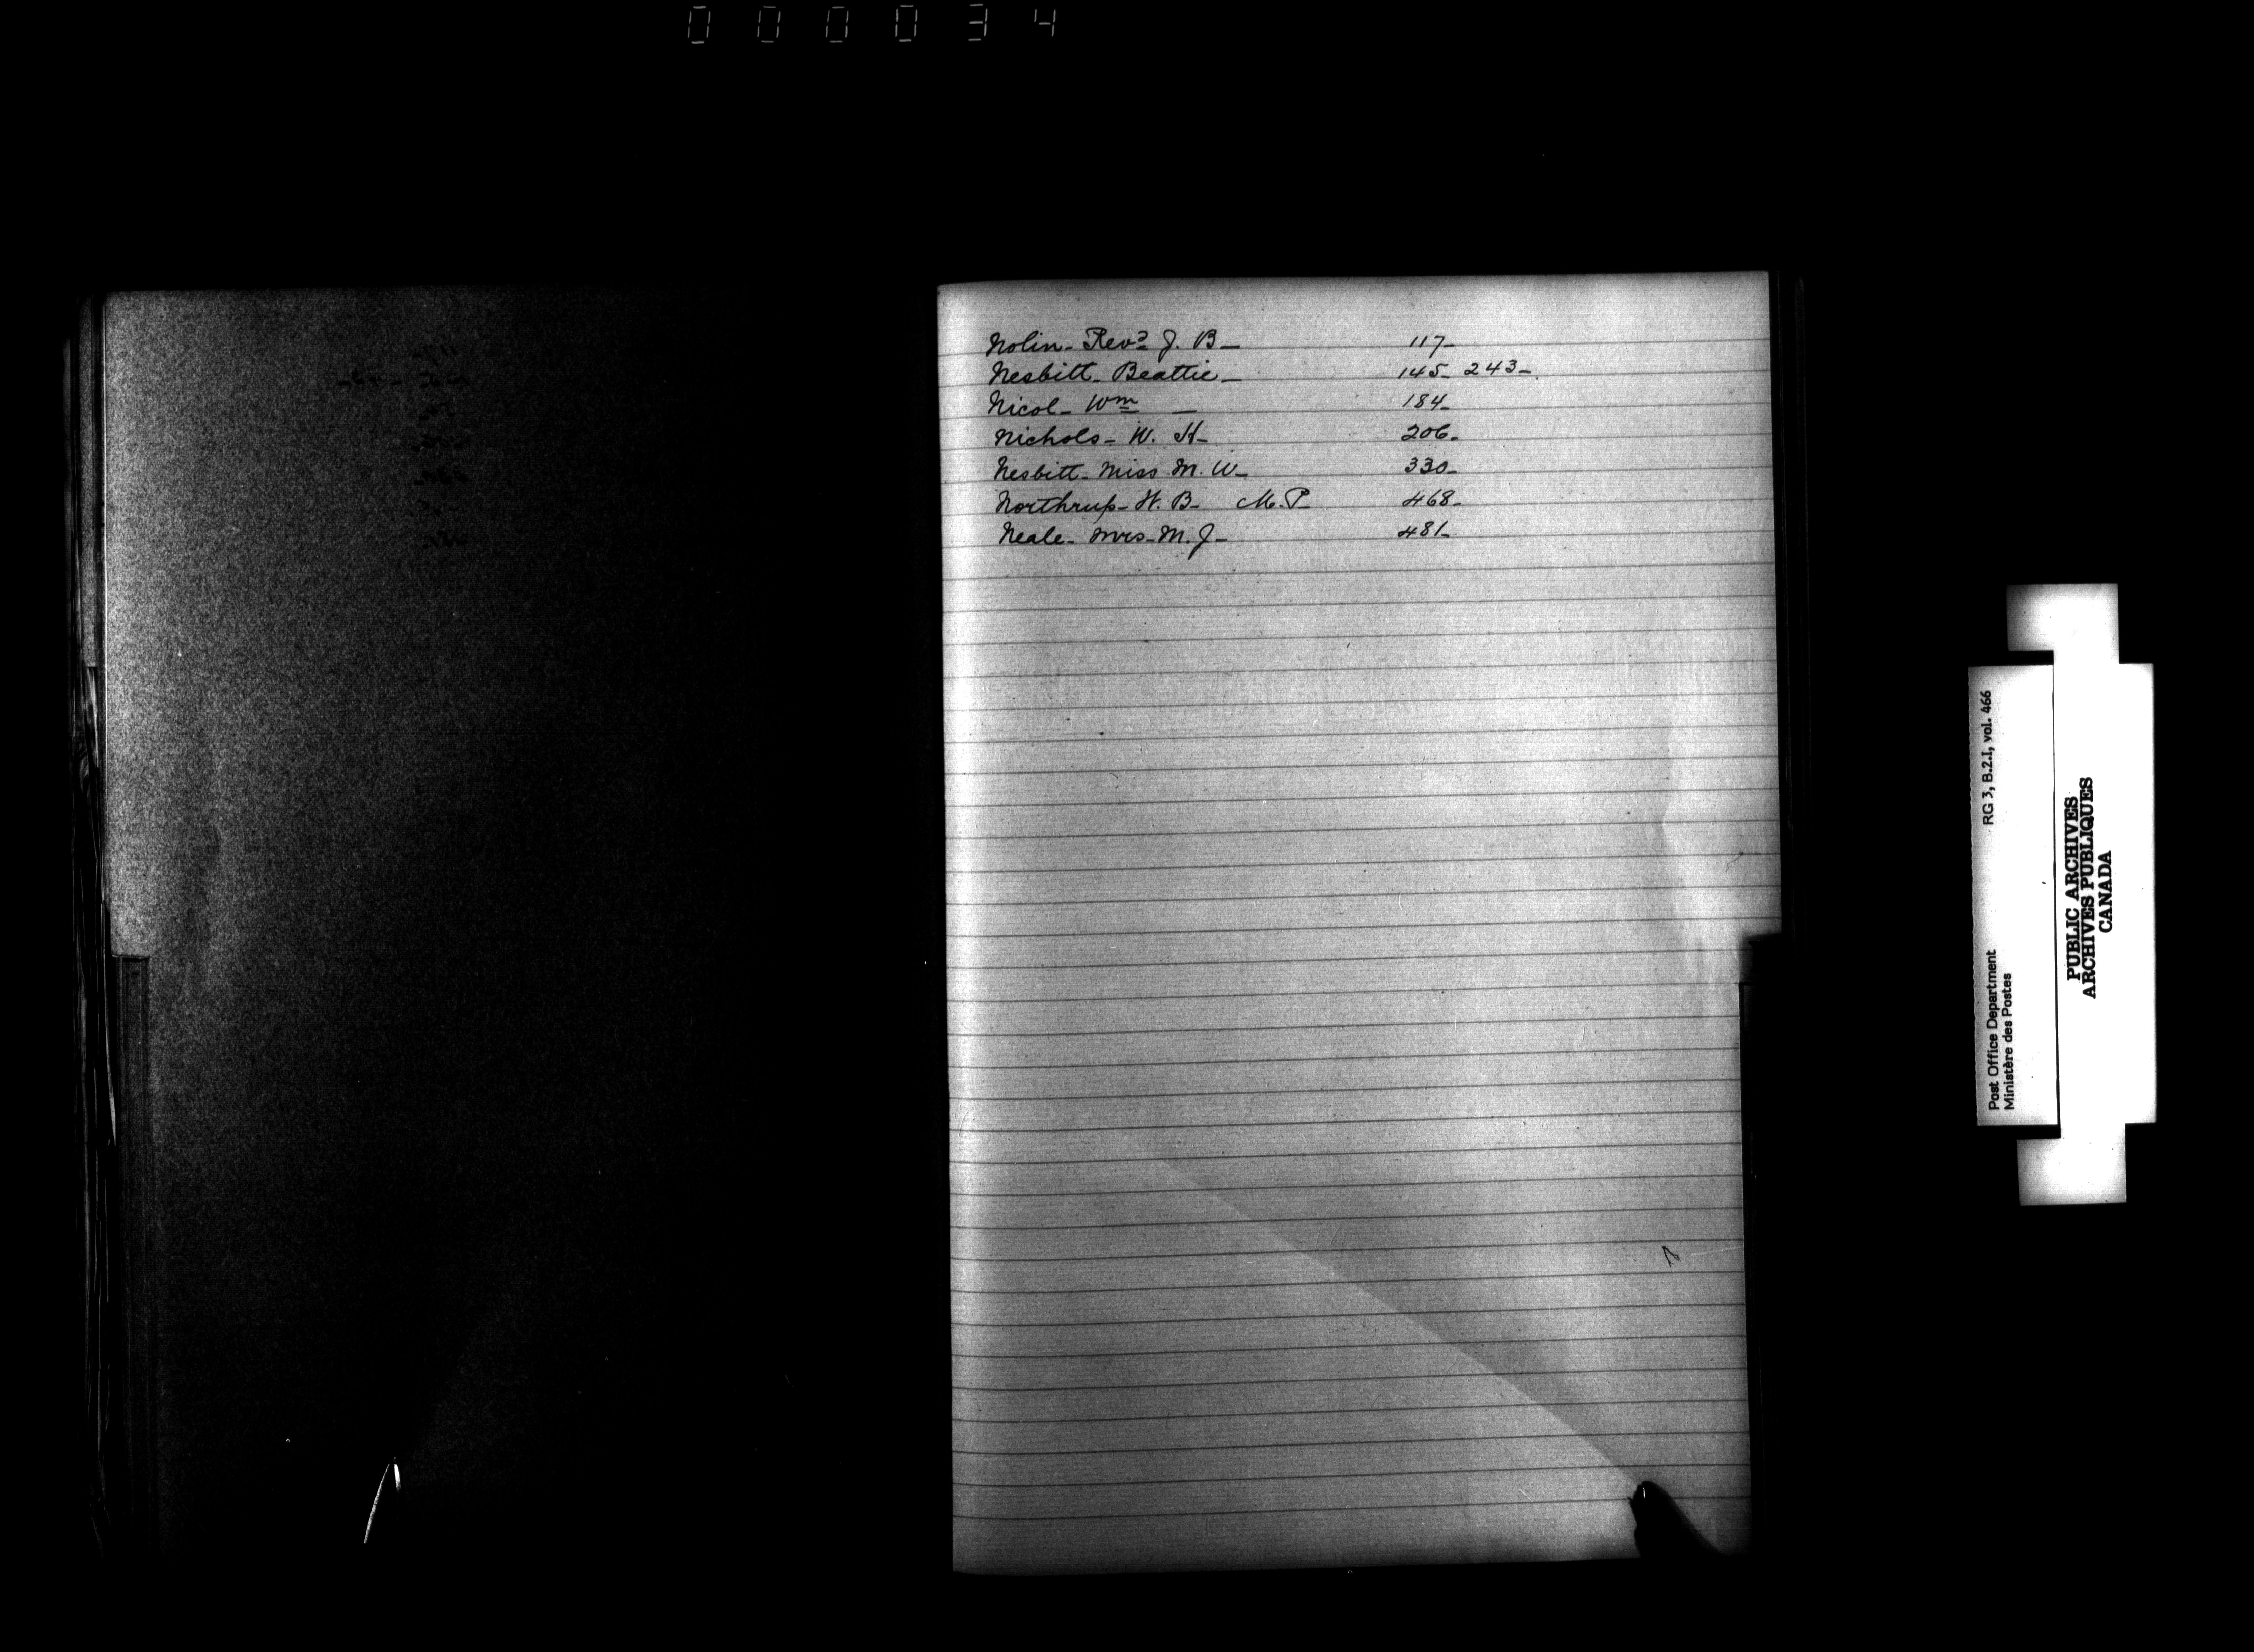 000034
Nolin - Revd J. B - 117 -
Nesbitt - Beattie - 145 - 243 -
Nicol - Wm - 184 -
Nichols - W. H - 206 -
Nesbitt - Miss M. W - 330 -
Northrup - W. B - M. P 468 -
Neale - Mrs - M. J - 481 -
Post Office Department RG 3, B.2.1, vol. 466
Ministère des Postes
PUBLIC ARCHIVES
ARCHIVES PUBLIQUES
CANADA